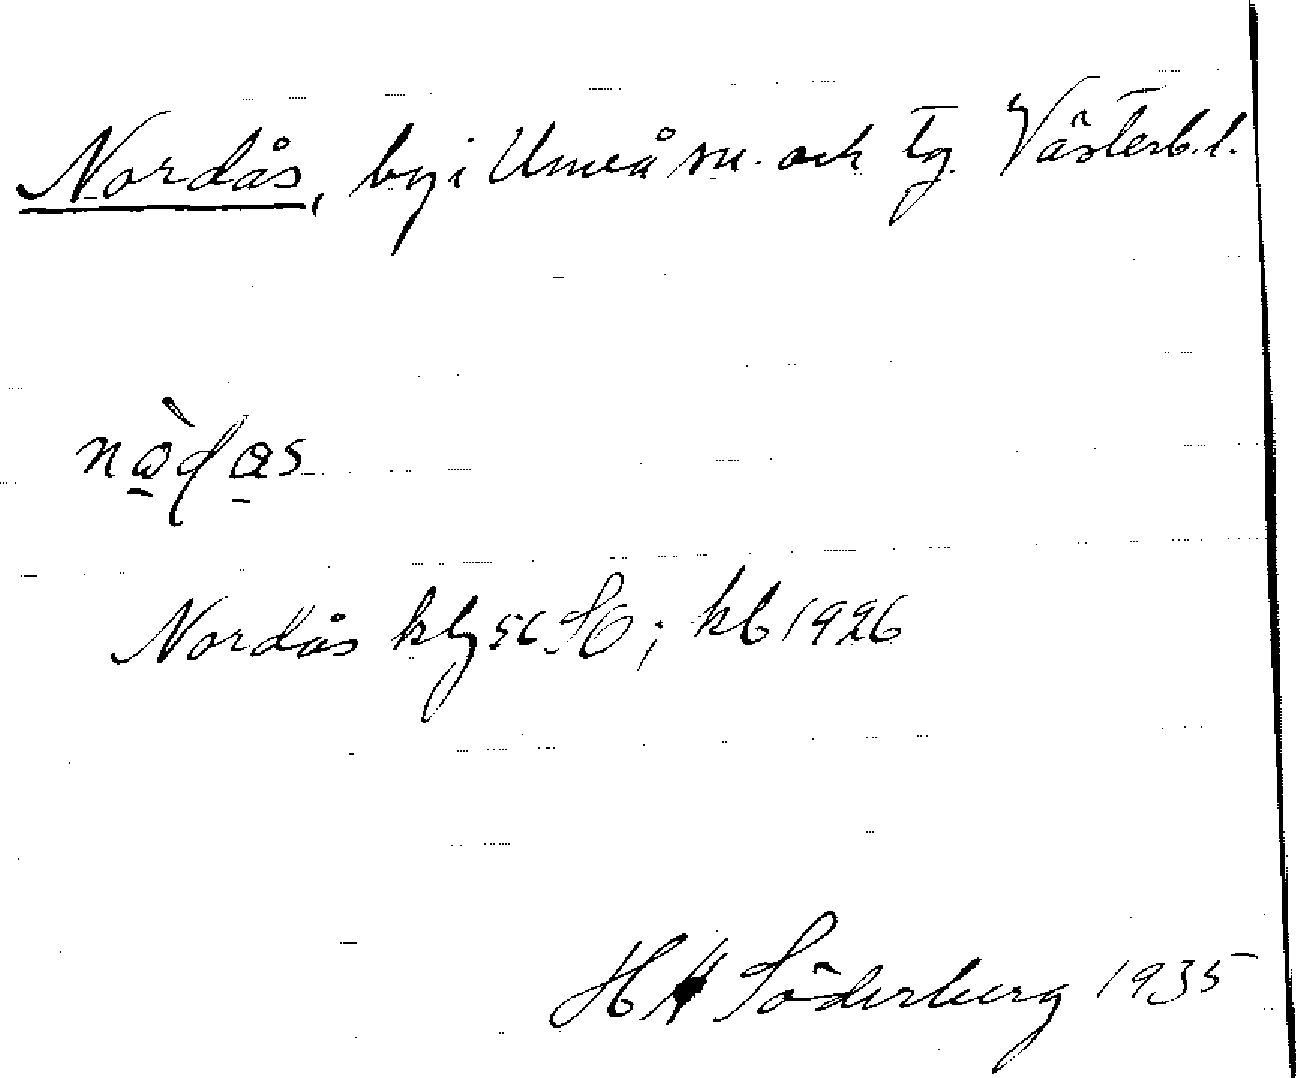 Nordås, by i Umeå sn. och tg. Västerb.l.
Nordås kbg 56 SO; kb 1926
H Söderberg 1935